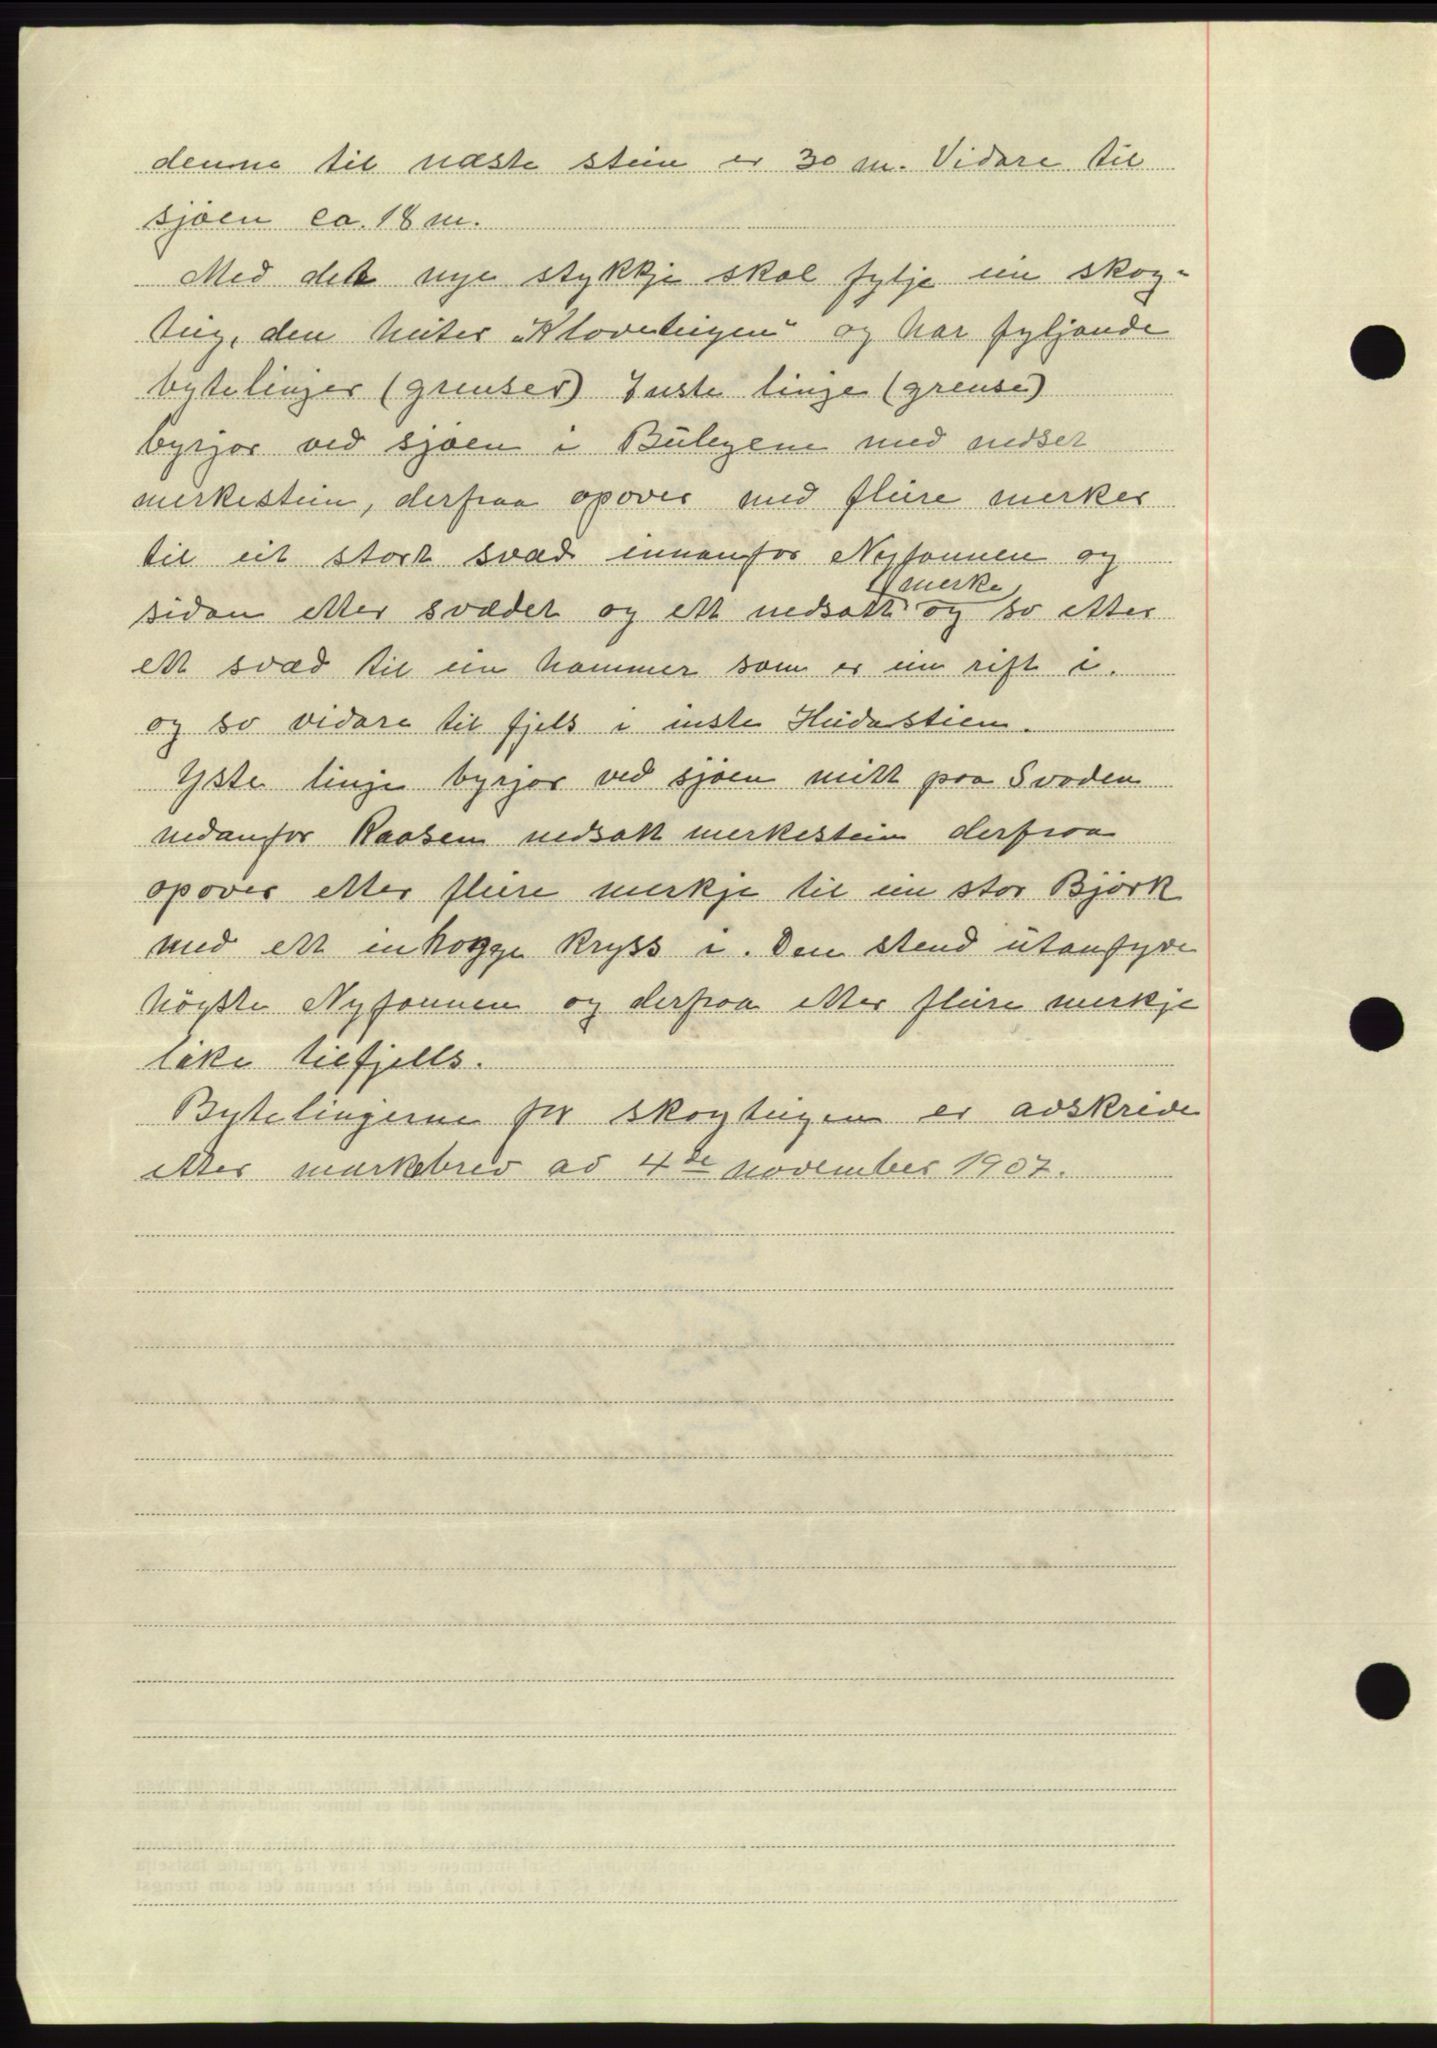 denne til næste stein er 30 m. Vidare til
sjøen ca. 18 m.
Med det nye stykkje skal fylje ein skog-
teig, den heiter „Kloveteigen" og har fyljande
bytelinjer (grenser) Inste linje (grense)
byrjar ved sjøen i Bülegene med nedset
merkestein, derfraa opover med fleire merker
til eit stort svæd innanfor Nyfonnen og
sidan etter svædet og ett nedsatt merke og so etter
ett svæd til ein hammer som er ein rift i.
og so vidare til fjels i inste Heidastien.
Yste linje byrjar ved sjøen mitt paa Svaden
nedanfor Raasen nedsatt merkestein derfraa
opover etter fleire merkje til ein stor Björk
med ett inhogge kryss i. Den stend utanfyre
högste Nyfonnen og derfraa etter fleire merkje
like tilfjells.
Bytelinjerne for skogteigen er avskrive
etter markebrev av 4de november 1907.